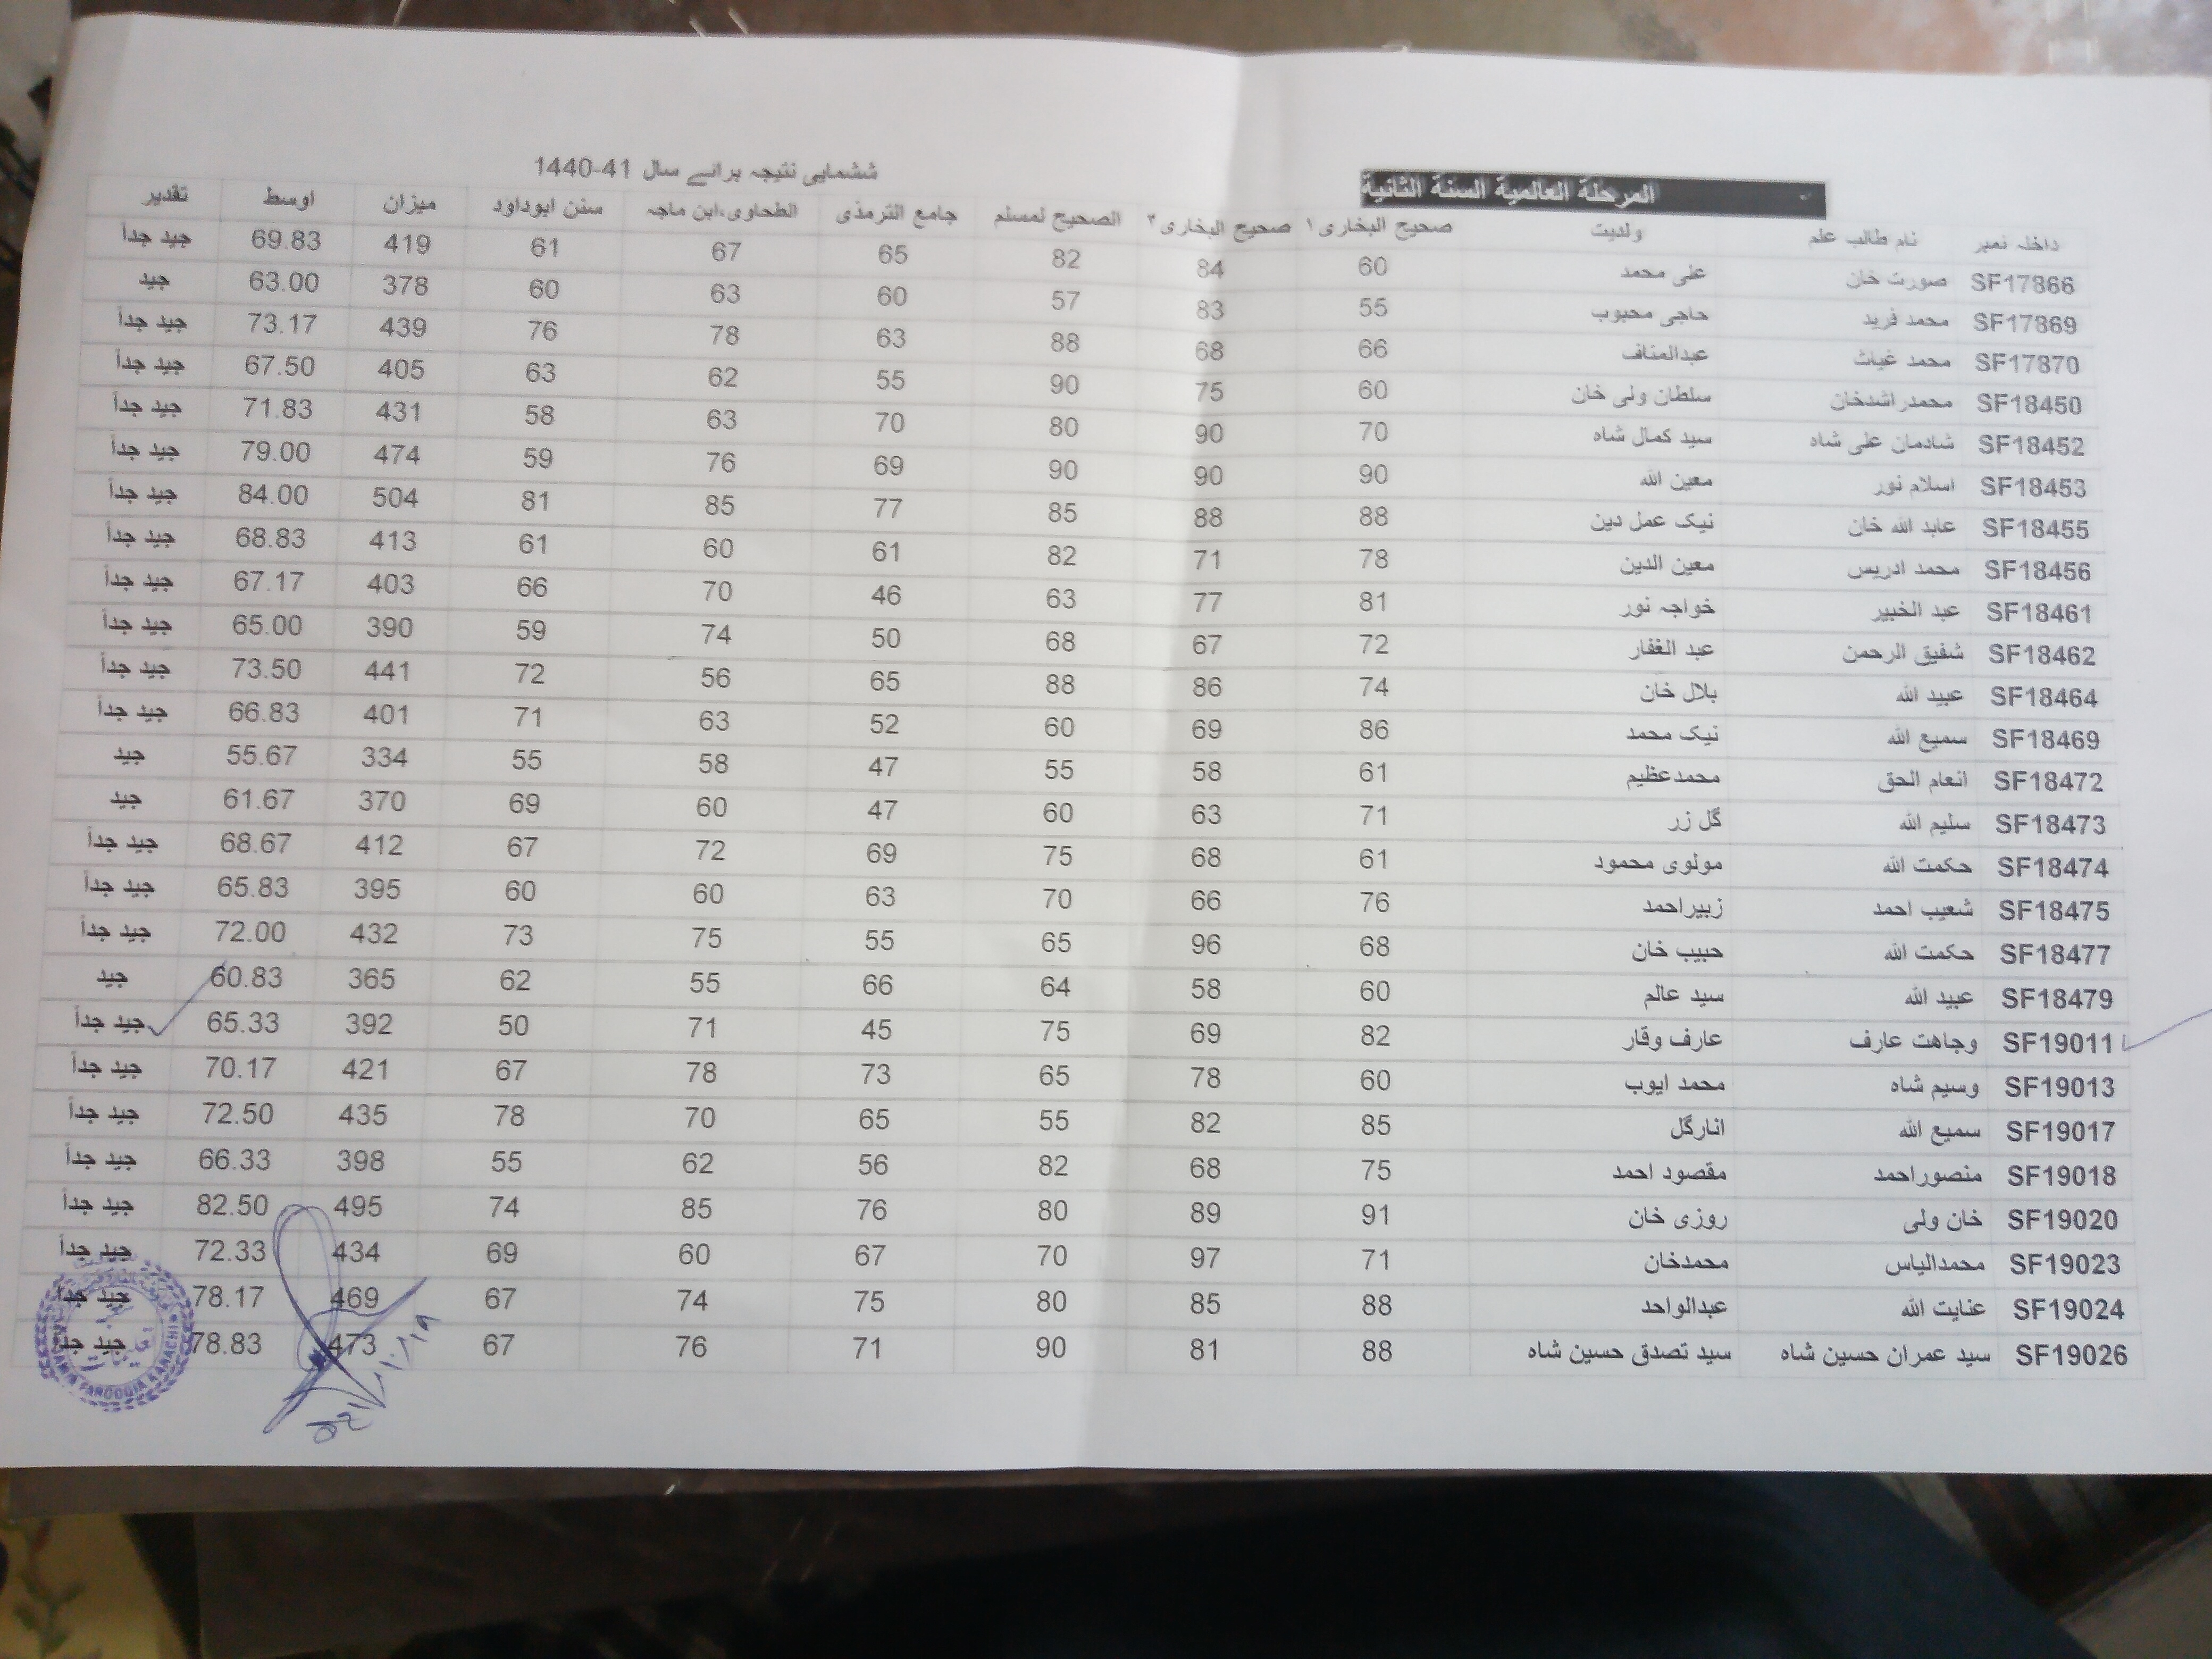 المرحلة العالمية السنة الثانية
ششماہی نتیجہ برائے سال 41-1440
داخلہ نمبر نام طالب علم ولدیت صحیح البخاری۱ صحیح البخاری۲ الصحیح لمسلم جامع الترمذی الطحاوی،ابن ماجہ سنن ابوداود میزان اوسط تقدیر
SF17866 صورت خان علی محمد 60 84 82 65 67 61 419 69.83 جید جداً
SF17869 محمد فرید حاجی محبوب 55 83 57 60 63 60 378 63.00 جید
SF17870 محمد غیاث عبدالمناف 66 68 88 63 78 76 439 73.17 جید جداً
SF18450 محمدراشدخان سلطان ولی خان 60 75 90 55 62 63 405 67.50 جید جداً
SF18452 شادمان علی شاہ سید کمال شاہ 70 90 80 70 63 58 431 71.83 جید جداً
SF18453 اسلام نور معین اللہ 90 90 90 69 76 59 474 79.00 جید جداً
SF18455 عابد اللہ خان نیک عمل دین 88 88 85 77 85 81 504 84.00 جید جداً
SF18456 محمد ادریس معین الدین 78 71 82 61 60 61 413 68.83 جید جداً
SF18461 عبد الخبیر خواجہ نور 81 77 63 46 70 66 403 67.17 جید جداً
SF18462 شفیق الرحمن عبد الغفار 72 67 68 50 74 59 390 65.00 جید جداً
SF18464 عبید اللہ بلال خان 74 86 88 65 56 72 441 73.50 جید جداً
SF18469 سمیع اللہ نیک محمد 86 69 60 52 63 71 401 66.83 جید جداً
SF18472 انعام الحق محمدعظیم 61 58 55 47 58 55 334 55.67 جید
SF18473 سلیم اللہ گل زر 71 63 60 47 60 69 370 61.67 جید
SF18474 حکمت اللہ مولوی محمود 61 68 75 69 72 67 412 68.67 جید جداً
SF18475 شعیب احمد زبیراحمد 76 66 70 63 60 60 395 65.83 جید جداً
SF18477 حکمت اللہ حبیب خان 68 96 65 55 75 73 432 72.00 جید جداً
SF18479 عبید اللہ سید عالم 60 58 64 66 55 62 365 60.83 جید
SF19011 وجاهت عارف عارف وقار 82 69 75 45 71 50 392 65.33 جید جداً
SF19013 وسیم شاہ محمد ایوب 60 78 65 73 78 67 421 70.17 جید جداً
SF19017 سمیع اللہ انارگل 85 82 55 65 70 78 435 72.50 جید جداً
SF19018 منصوراحمد مقصود احمد 75 68 82 56 62 55 398 66.33 جید جداً
SF19020 خان ولی روزی خان 91 89 80 76 85 74 495 82.50 جید جداً
SF19023 محمدالیاس محمدخان 71 97 70 67 60 69 434 72.33 جید جداً
SF19024 عنایت اللہ عبدالواحد 88 85 80 75 74 67 469 78.17 جید جداً
SF19026 سید عمران حسین شاہ سید تصدق حسین شاہ 88 81 90 71 76 67 473 78.83 جید جداً
JAMIA FAROOQIA KARACHI